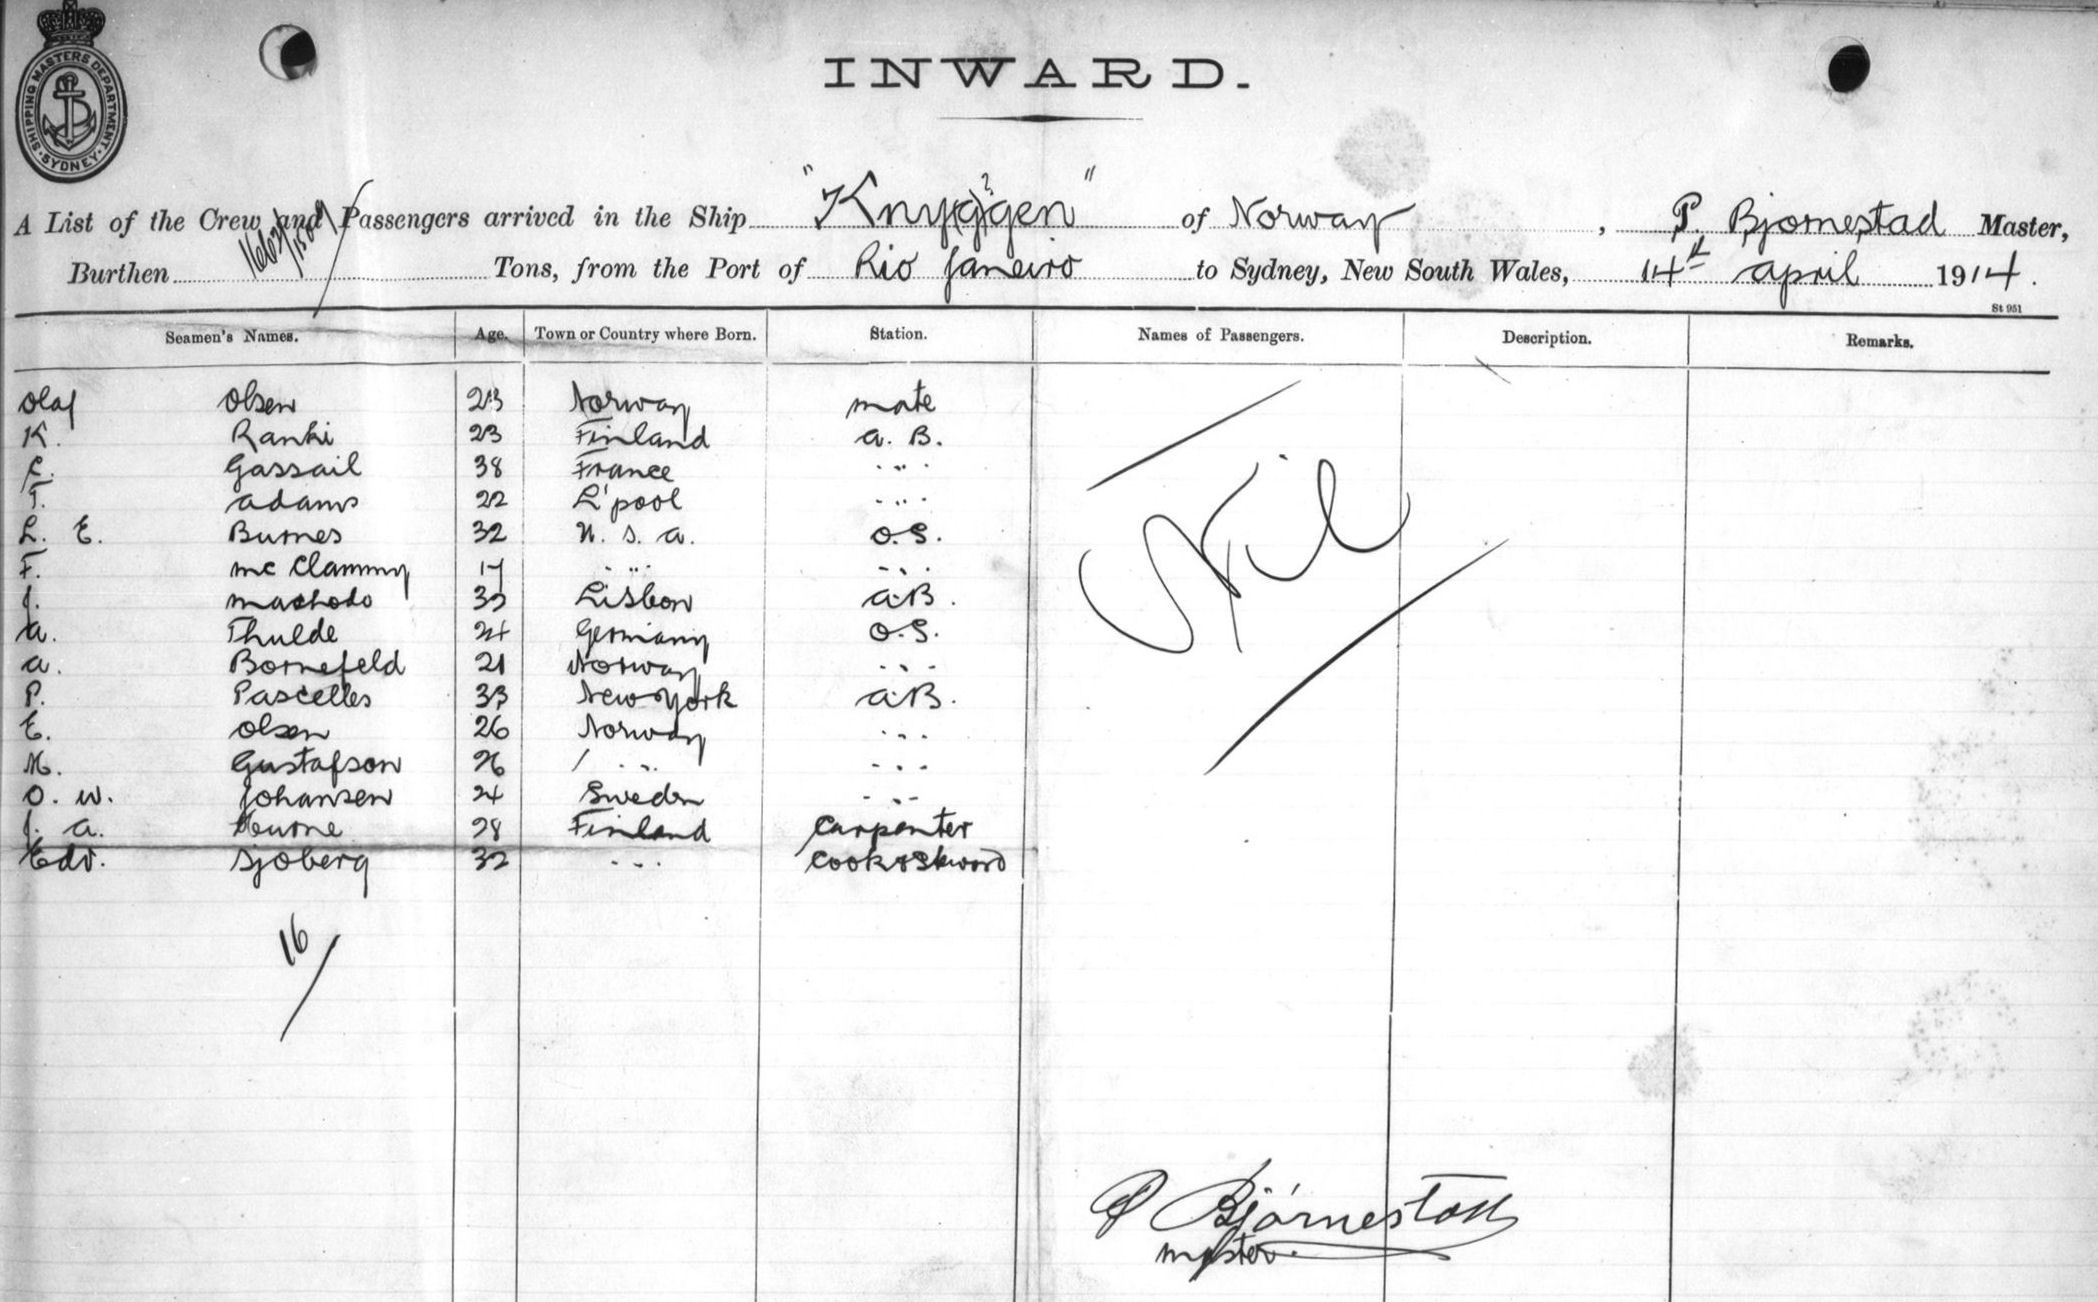 SHIPPING MASTERS DEPARTMENT
SYDNEY
INWARD.
A List of the Crew and Passengers arrived in the Ship "Knyggen" of Norway, P. Bjornestad Master,
Burthen Tons, from the Port of Rio Janeiro to Sydney, New South Wales, 14th April 1914.
St 951
Seamen's Names. Age. Town or Country where Born. Station. Names of Passengers. Description. Remarks.
Olaf Olsen 23 Norway mate
K. Ranki 23 Finland A. B.
Gassail 38 France " 
T. Adams 22 L'pool "
L. E. Burnes 32 U. S. A. O.S.
F. McClammy 17 " "
J. Machodo Lisbon A.B.
A. Thulde 24 Germany O.S.
A. Bornefeld 21 Norway "
P. Pascelles 33 New York A.B.
E. Olsen 26 Norway "
M. Gustafson 26 " "
O. W. Johansen 24 Sweden "
J. A. 28 Finland Carpenter
Edv. Sjoberg 32 " Cook & Steward
Nil
16
P Bjørnestad
Master.